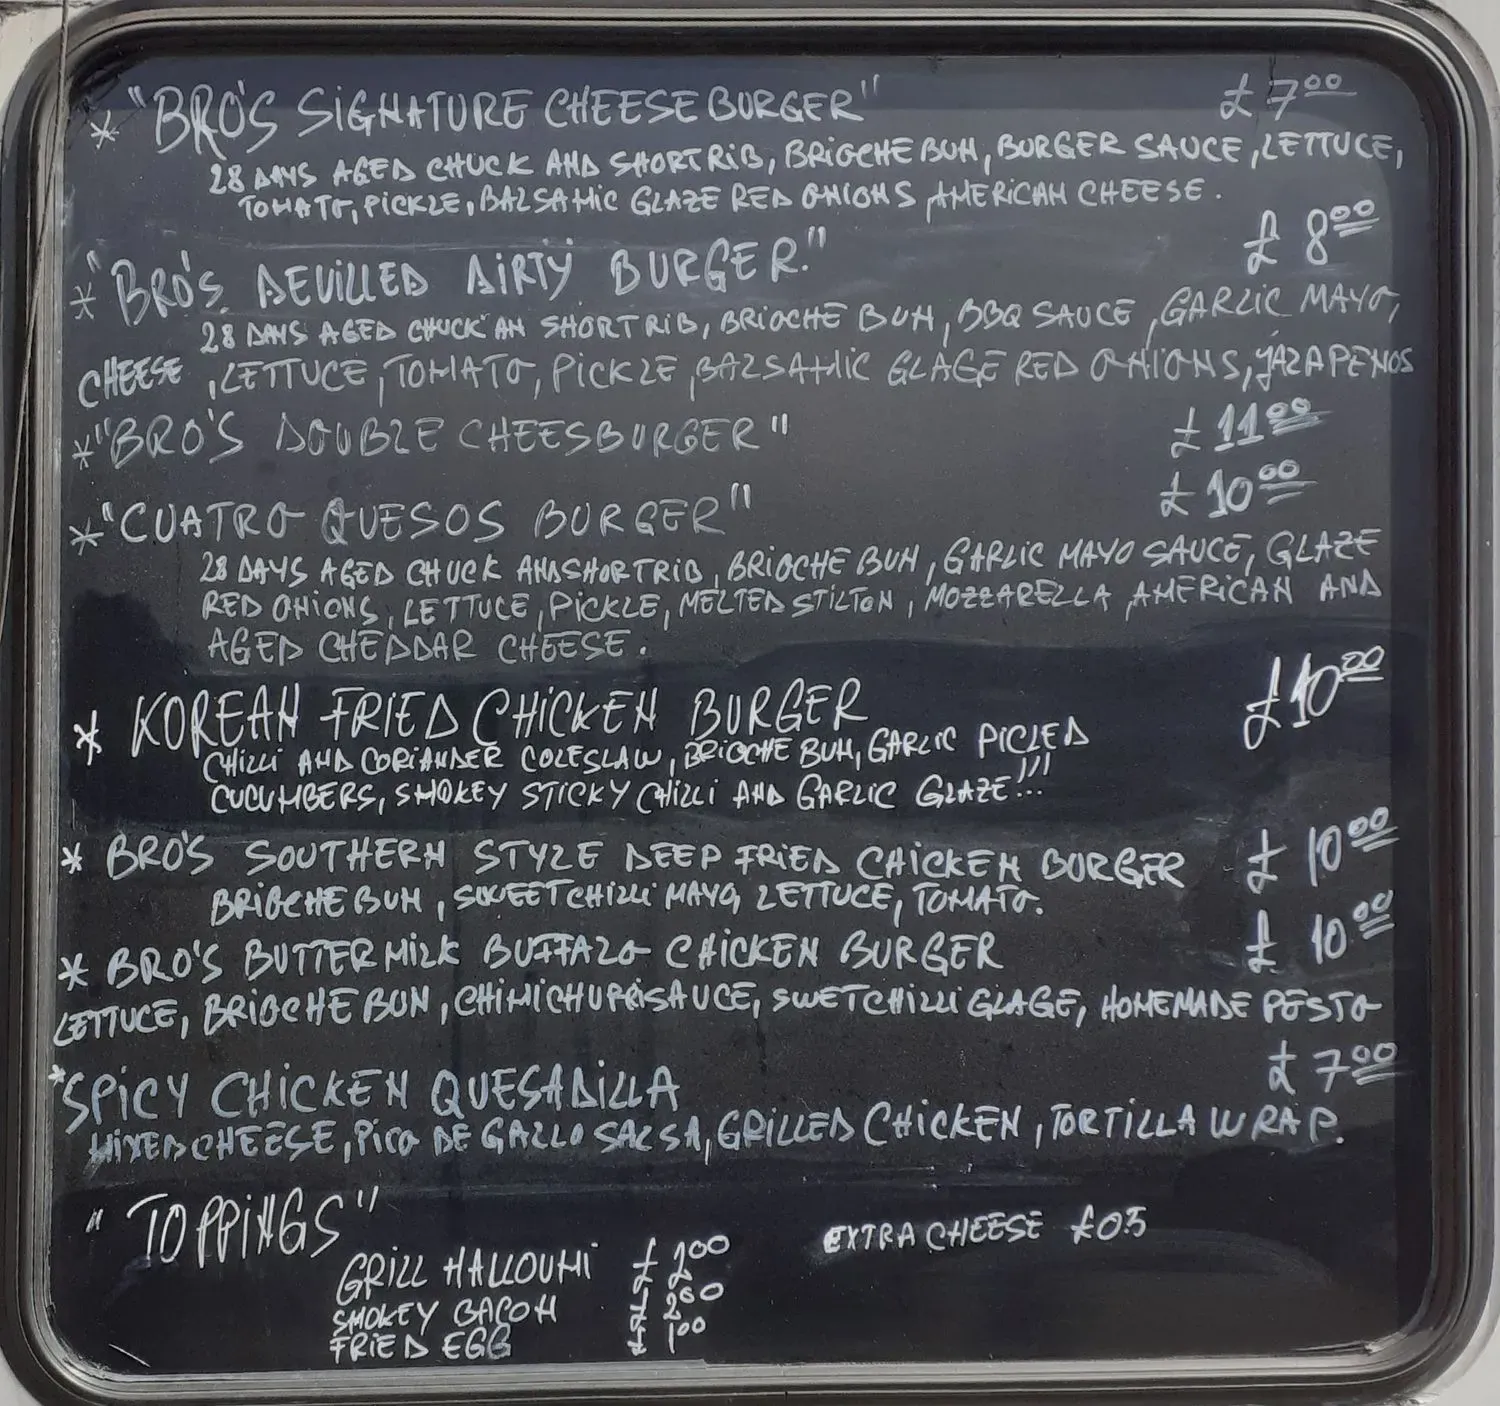 * "BRO'S SIGNATURE CHEESEBURGER" £7.00
28 DAYS AGED CHUCK AND SHORTRIB, BRIOCHE BUN, BURGER SAUCE, LETTUCE,
TOMATO, PICKLE, BALSAMIC GLAZE RED ONIONS AMERICAN CHEESE.
* "BRO'S DEVILLED DIRTY BURGER." £ 8.00
28 DAYS AGED CHUCK AN SHORTRIB, BRIOCHE BUN, BBQ SAUCE, GARLIC MAYO,
CHEESE, LETTUCE, TOMATO, PICKLE, BALSAMIC GLAGE RED ONIONS, JALAPENOS
* "BRO'S DOUBLE CHEESBURGER" £ 11.00
* "CUATRO QUESOS BURGER" £ 10.00
28 DAYS AGED CHUCK ANDSHORTRIB, BRIOCHE BUN, GARLIC MAYO SAUCE, GLAZE
RED ONIONS, LETTUCE, PICKLE, MELTED STILTON, MOZZARELLA, AMERICAN AND
AGED CHEDDAR CHEESE.
* KOREAN FRIED CHICKEN BURGER £10.00
CHILLI AND CORIANDER COLESLAW, BRIOCHE BUN, GARLIC PICLED
CUCUMBERS, SMOKEY STICKY CHILLI AND GARLIC GLAZE!!!
* BRO'S SOUTHERN STYLE DEEP FRIED CHICKEN BURGER £ 10.00
BRIOCHE BUN, SWEETCHILLI MAYO, LETTUCE, TOMATO.
* BRO'S BUTTERMILK BUFFALO CHICKEN BURGER £ 10.00
LETTUCE, BRIOCHE BUN, CHIMICHURRISAUCE, SWETCHILLI GLAGE, HOMEMADE PESTO
* SPICY CHICKEN QUESADILLA £ 7.00
MIXED CHEESE, PICO DE GALLO SALSA, GRILLED CHICKEN, TORTILLA WRAP.
"TOPPINGS"
EXTRA CHEESE £05
GRILL HALLOUMI £ 2.00
SMOKEY BACON £ 2.00
FRIED EGG £ 1.00